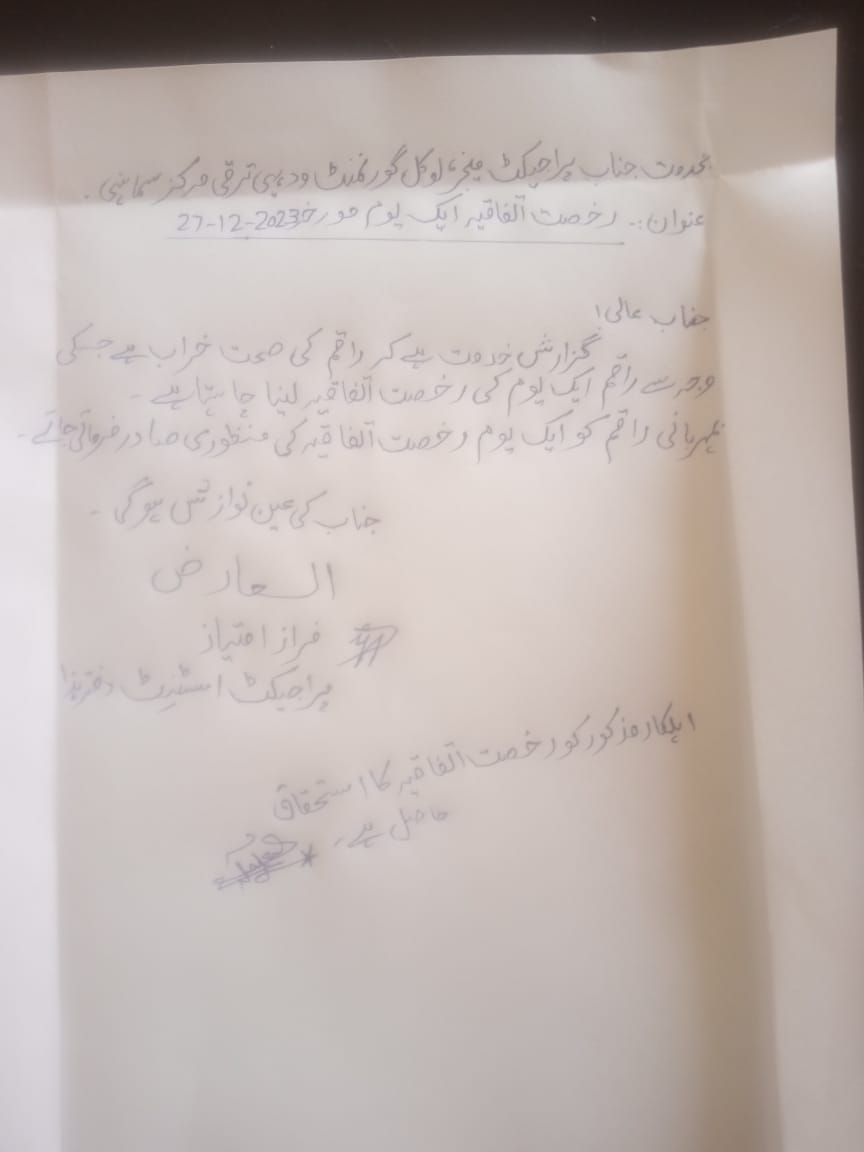 بخدمت جناب پراجیکٹ منیجر، لوکل گورنمنٹ و دیہی ترقی مرکز سماہنی۔
عنوان:۔ رخصت اتفاقیہ ایک یوم مورخہ 27-12-2023
جناب عالی!
گزارش خدمت ہے کہ راقم کی صحت خراب ہے جسکی
وجہ سے راقم ایک یوم کی رخصت اتفاقیہ لینا چاہتا ہے۔
بمہربانی راقم کو ایک یوم رخصت اتفاقیہ کی منظوری صادر فرمائی جائے۔
جناب کی عین نوازش ہوگی۔
العارض
فراز امتیاز
پراجیکٹ اسسٹنٹ دفتر ہذا
اہلکار مذکور کو رخصت اتفاقیہ کا استحقاق
حاصل ہے۔